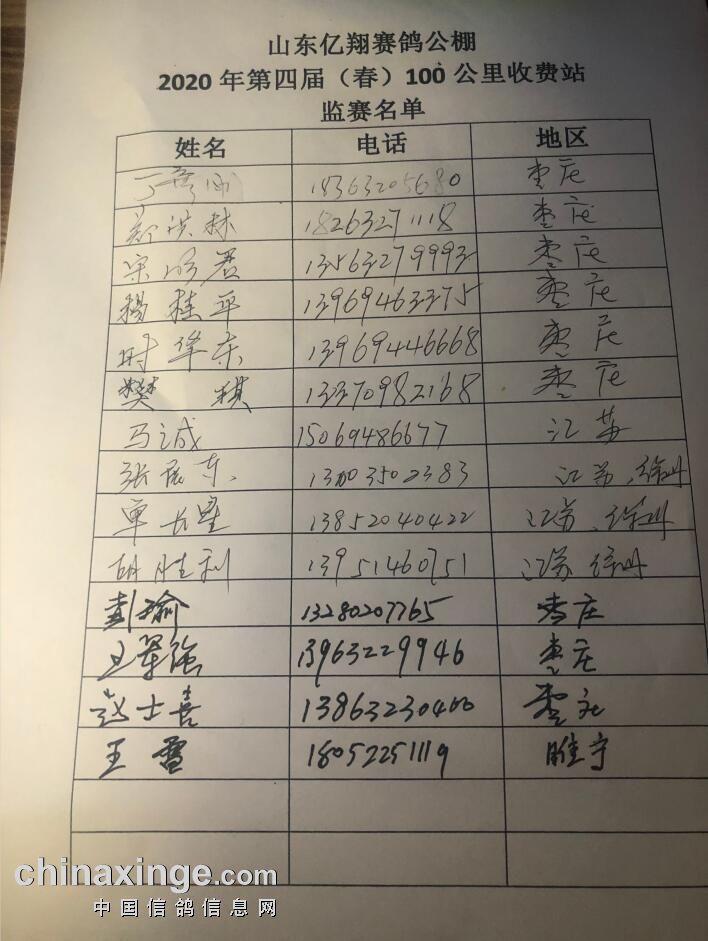 山东亿翔赛鸽公棚
2020年第四届（春）100公里收费站
监赛名单
姓名 电话 地区
18363205680 枣庄
洪林 18263271118 枣庄
宋 君 13563279993 枣庄
杨桂平 13969463375 枣庄
时华东 13969446668 枣庄
樊祺 13370982168 枣庄
马诚 15069486677 江苏
张 东 3502383 江苏、徐州
单 13852040422 江苏、徐州
胡胜利 13951460751 江苏 徐州
彭瑜 13280207765 枣庄
王军强 13963229946 枣庄
赵士喜 13863230400 枣庄
王雷 18052251119 睢宁
chinaxinge.com
中国信鸽信息网